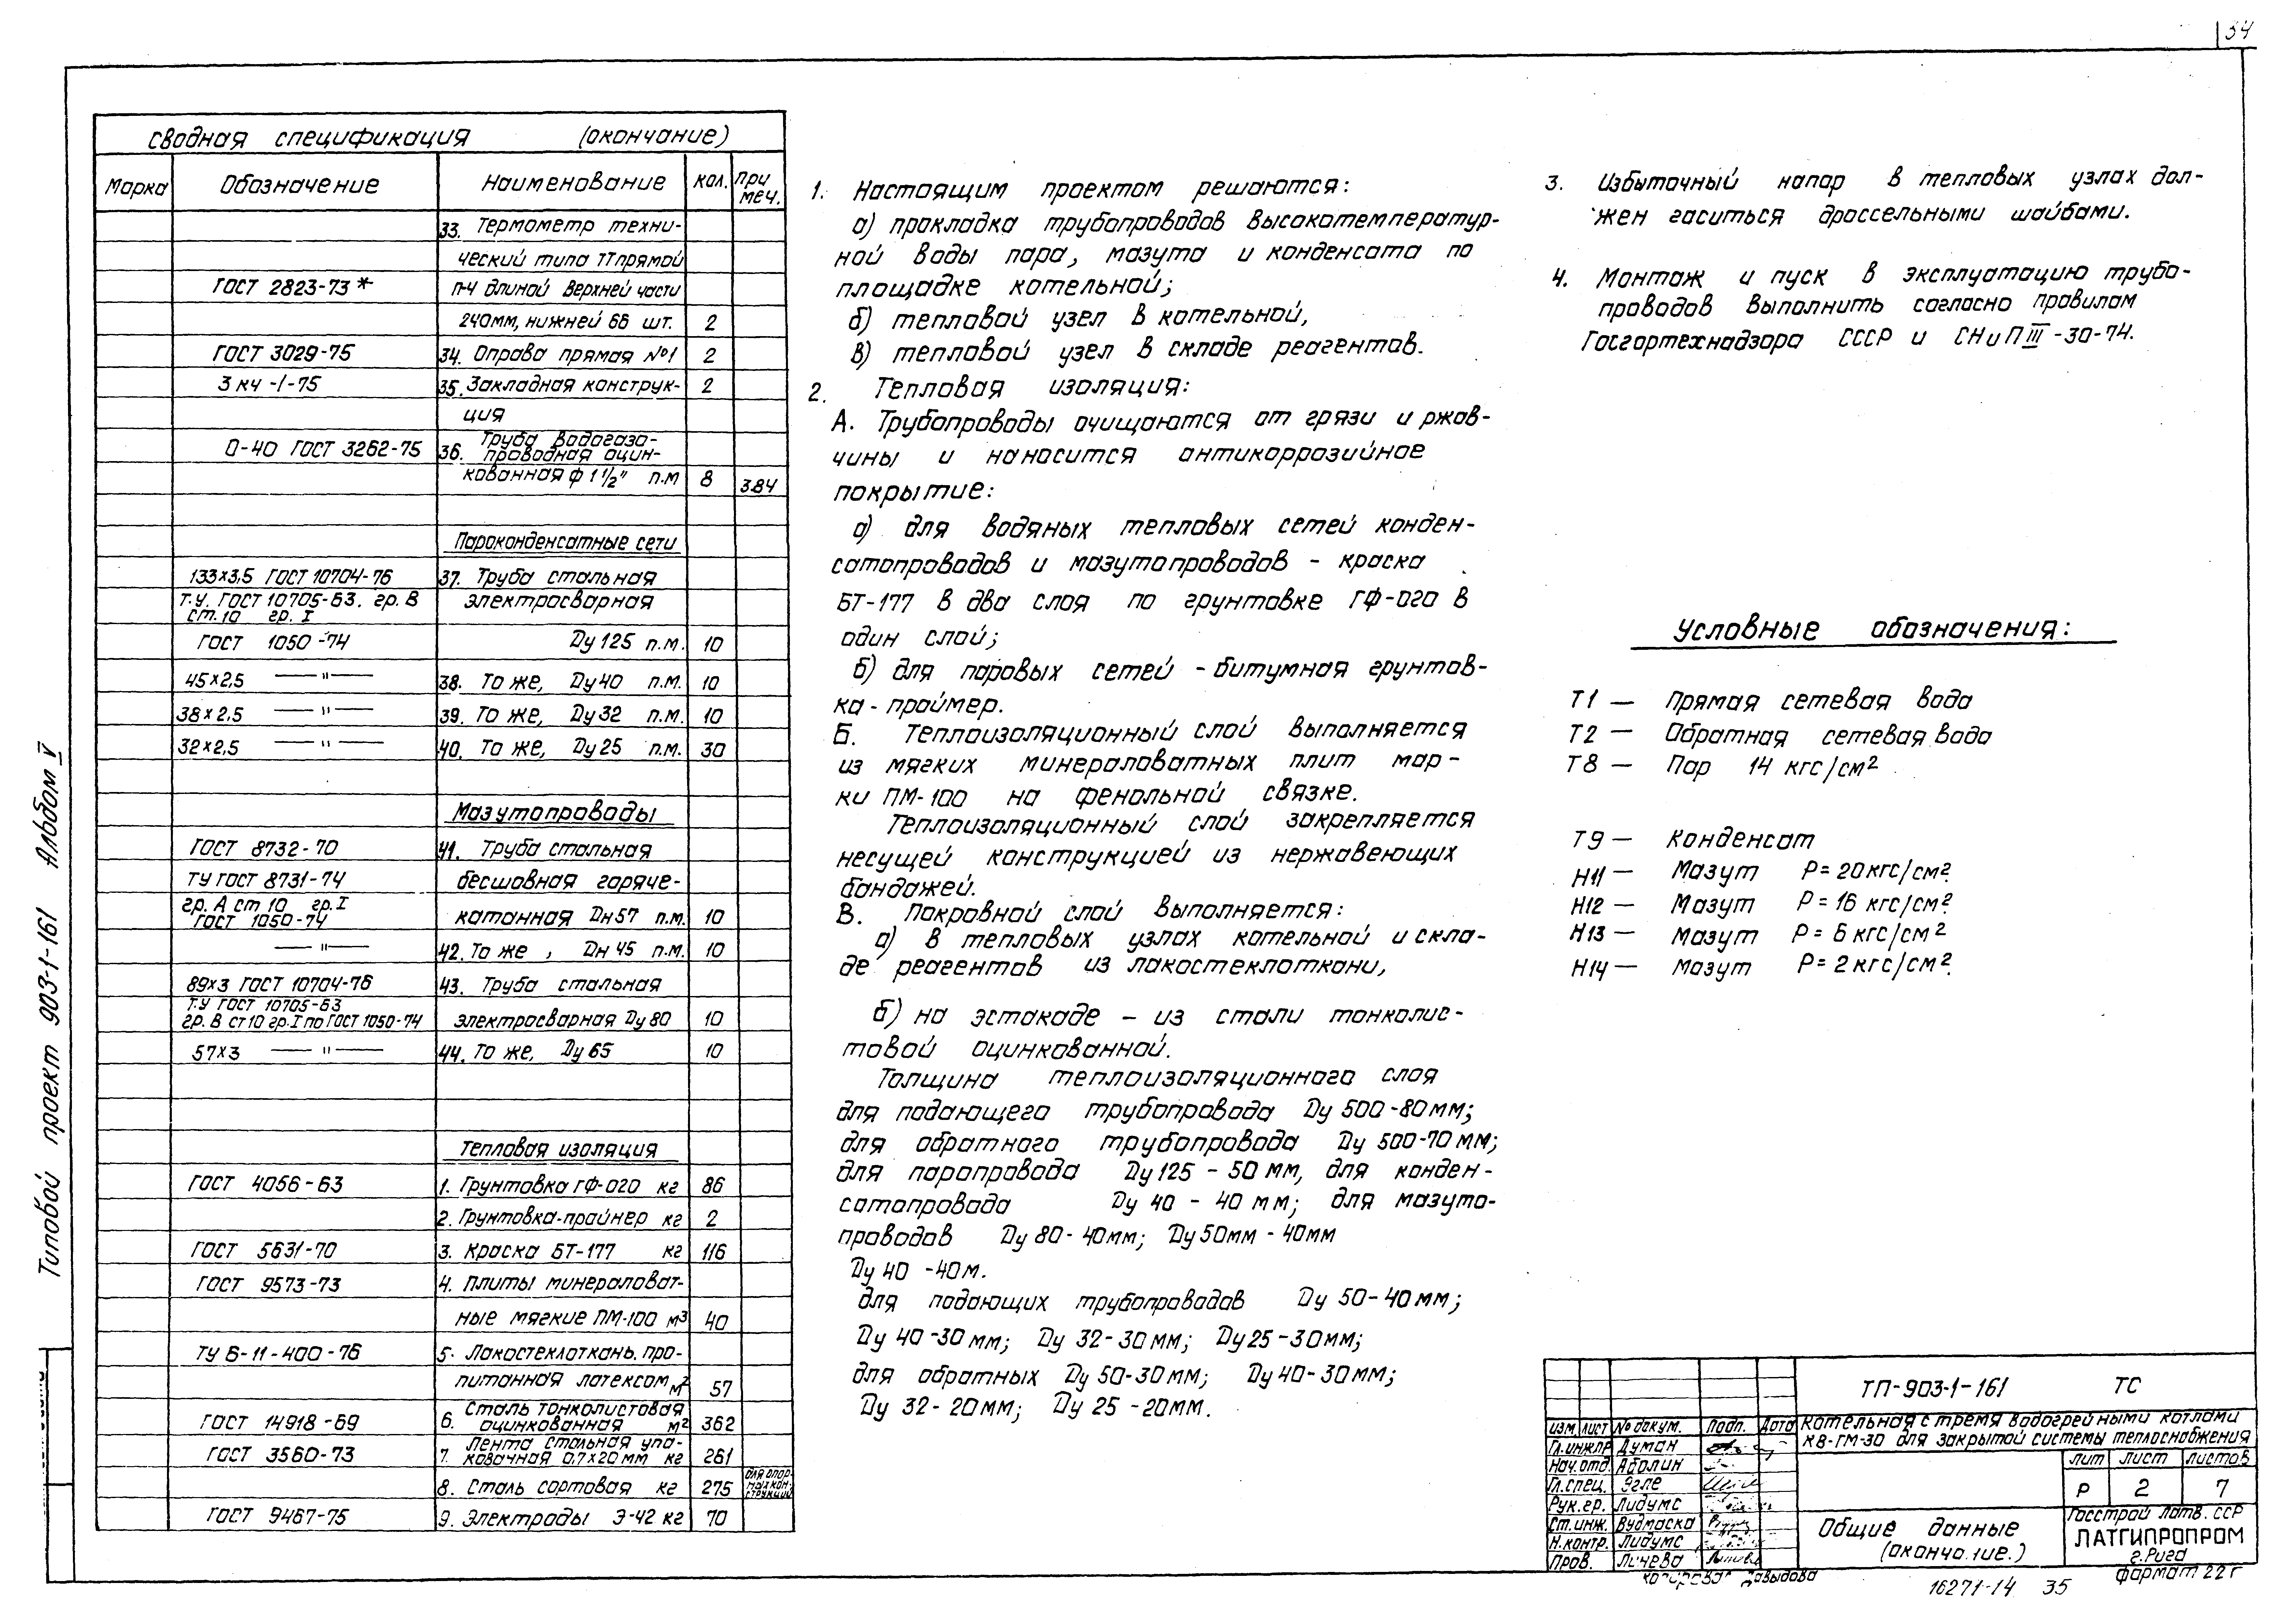 34
Типовой проект 903-1-161 Альбом V
Сводная спецификация (окончание)
Марка Обозначение Наименование кол. При меч.
33. Термометр техни-
ческий типа ТТ прямой
ГОСТ 2823-73* П-4 длиной верхней части
240мм, нижней 66 шт. 2
ГОСТ 3029-75 34. Оправа прямая №1 2
3 кч -1-75 35. Закладная конструк- 2
ция
О-40 ГОСТ 3262-75 36. Труба водогазо-
проводная оцин-
кованная ф 1 1/2" п.м 8 3.84
Пароконденсатные сети
133х3,5 ГОСТ 10704-76 37. Труба стальная
Т.У. ГОСТ 10705-63. гр. В электросварная
ст.10 гр. I
ГОСТ 1050-74 Ду 125 п.м. 10
45х2,5 —"— 38. То же, Ду 40 п.м. 10
38х2,5 —"— 39. То же, Ду 32 п.м. 10
32х2,5 —"— 40. То же, Ду 25 п.м. 30
Мазутопроводы
ГОСТ 8732-70 41. Труба стальная
ТУ ГОСТ 8731-74 бесшовная горяче-
гр. А ст 10 гр. I
ГОСТ 1050-74 катанная Дн 57 п.м. 10
—"— 42. То же, Дн 45 п.м. 10
89х3 ГОСТ 10704-76 43. Труба стальная
Т.У ГОСТ 10705-63
гр. В ст 10 гр. I по ГОСТ 1050-74 электросварная Ду 80 10
57х3 —"— 44. То же, Ду 65 10
Тепловая изоляция
ГОСТ 4056-63 1. Грунтовка ГФ-020 кг 86
2. Грунтовка-праймер кг 2
ГОСТ 5631-70 3. Краска БТ-177 кг 116
ГОСТ 9573-73 4. Плиты минераловат-
ные мягкие ПМ-100 м³ 40
ТУ 6-11-400-76 5. Лакостеклоткань. про-
питанная латексом м² 57
ГОСТ 14918-69 6. Сталь тонколистовая
оцинкованная м² 362
ГОСТ 3560-73 7. Лента стальная упа-
ковочная 0,7х20мм кг 261
8. Сталь сортовая кг 275 для опор-
ных кон-
струкций
ГОСТ 9467-75 9. Электроды Э-42 кг 70
1. Настоящим проектом решаются:
а) прокладка трубопроводов высокотемператур-
ной воды пара, мазута и конденсата по
площадке котельной;
б) тепловой узел в котельной,
в) тепловой узел в складе реагентов.
2. Тепловая изоляция:
А. Трубопроводы очищаются от грязи и ржав-
чины и наносится антикоррозийное
покрытие:
а) для водяных тепловых сетей конден-
сатопроводов и мазутопроводов - краска
БТ-177 в два слоя по грунтовке ГФ-020 в
один слой;
б) для паровых сетей - битумная грунтов-
ка-праймер.
Б. Теплоизоляционный слой выполняется
из мягких минераловатных плит мар-
ки ПМ-100 на фенольной связке.
Теплоизоляционный слой закрепляется
несущей конструкцией из нержавеющих
бандажей.
В. Покровной слой выполняется:
а) в тепловых узлах котельной и скла-
де реагентов из лакостеклоткани,
б) на эстакаде - из стали тонколис-
товой оцинкованной.
Толщина теплоизоляционного слоя
для подающего трубопровода Ду 500-80мм;
для обратного трубопровода Ду 500-70мм;
для паропровода Ду 125 - 50 мм, для конден-
сатопровода Ду 40 - 40 мм; для мазуто-
проводов Ду 80-40мм; Ду 50мм - 40мм
Ду 40 -40м.
для подающих трубопроводов Ду 50-40мм;
Ду 40-30мм; Ду 32-30мм; Ду 25-30мм;
для обратных Ду 50-30мм; Ду 40-30мм;
Ду 32-20мм; Ду 25 -20мм.
3. Избыточный напор в тепловых узлах дол-
жен гаситься дроссельными шайбами.
4. Монтаж и пуск в эксплуатацию трубо-
проводов выполнить согласно правилам
Госгортехнадзора СССР и СНиП III-30-74.
Условные обозначения:
Т1 — Прямая сетевая вода
Т2 — Обратная сетевая вода
Т8 — Пар 14 кгс/см²
Т9 — Конденсат
Н11 — Мазут Р= 20кгс/см².
Н12 — Мазут Р= 16 кгс/см².
Н13 — Мазут Р= 6 кгс/см²
Н14 — Мазут Р= 2 кгс/см².
ТП-903-1-161 ТС
Изм. Лист № докум. Подп. Дата
Котельная с тремя водогрейными котлами
КВ-ГМ-30 для закрытой системы теплоснабжения
Гл.инж.пр Думан
Нач. отд. Аболин
Гл.спец. Эгле
Рук.гр. Лидумс
Ст.инж. Вудмаска
Н.контр. Лидумс
Пров. Личева
Лит Лист Листов
Р 2 7
Общие данные
(оконча.ие.)
Госстрой Латв. ССР
ЛАТГИПРОПРОМ
г.Рига
Копировал Давыдова
16271-14 35
формат 22г